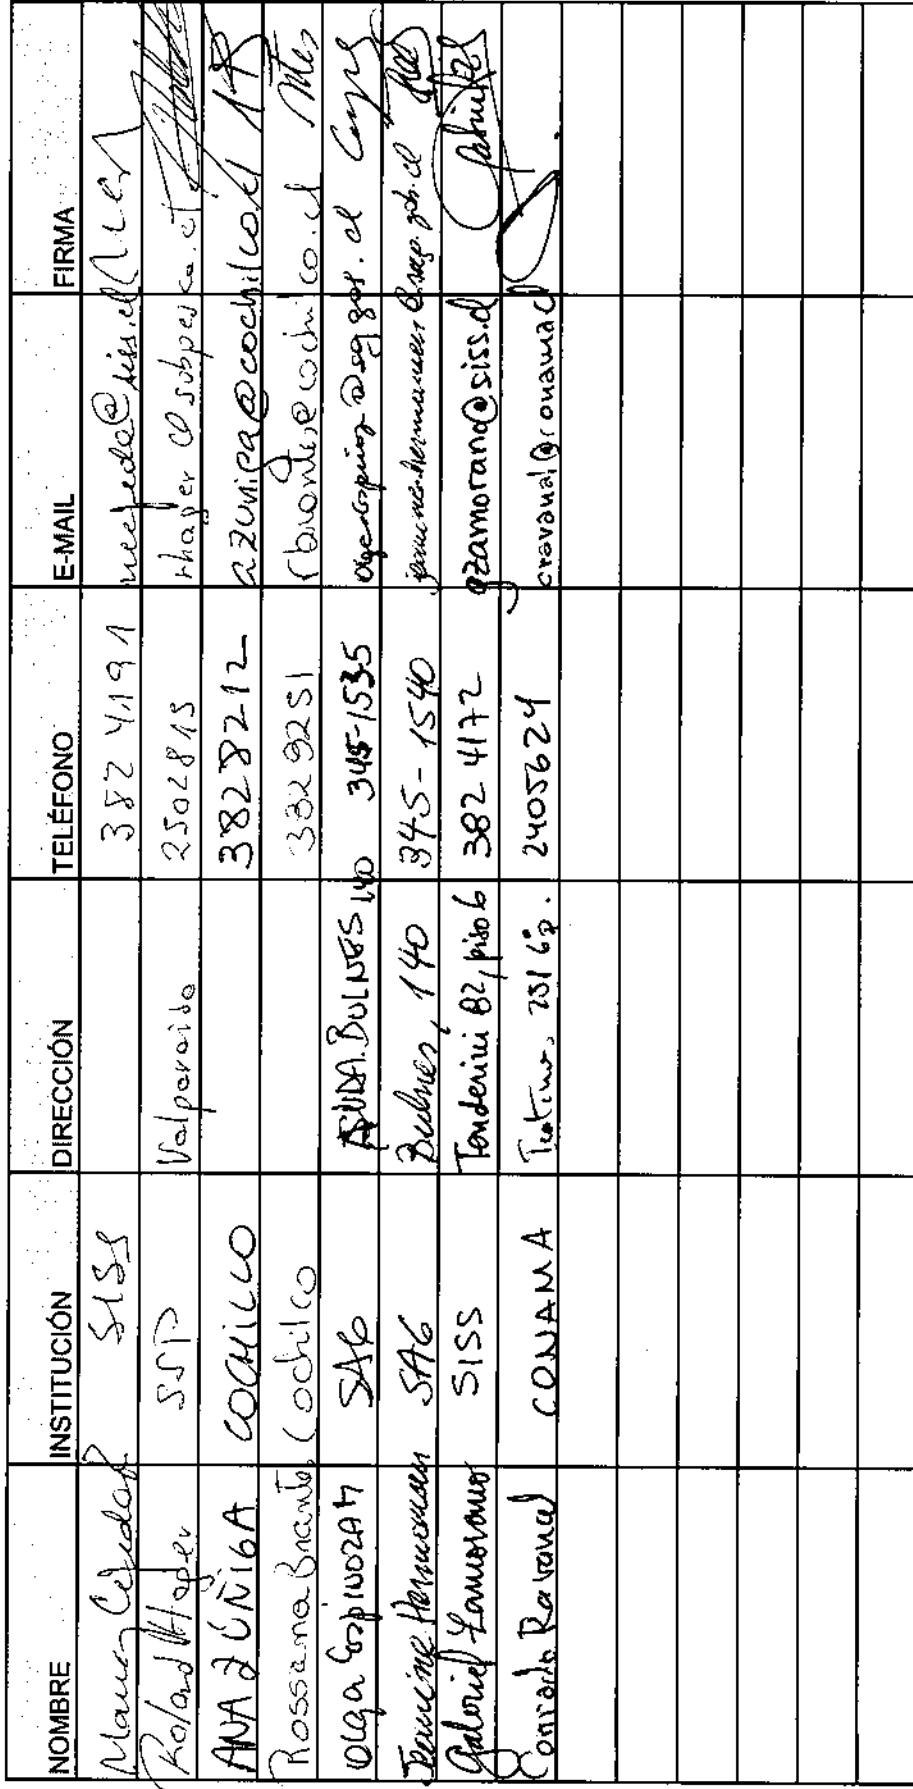 NOMBRE INSTITUCIÓN DIRECCIÓN TELÉFONO E-MAIL FIRMA
SISS 382 4191
Roland Hager SSP Valparaíso 2502815 rhager@subpesca.cl
ANA ZÚÑIGA COCHILCO 3828212 azuniga@cochilco.cl
Rossana Brantes Cochilco 3829251 rbrantes@cochilco.cl
Olga Espinoza M SAG AVDA. BULNES 140 345-1535 olga.espinoza@sag.gob.cl
Jeannine Hermansen SAG Bulnes, 140 345-1540 jeannine.hermansen@sag.gob.cl
Gabriel Zamorano SISS Tenderini 82, piso 6 382 4172 gzamorano@siss.cl
Conrado Ravanal CONAMA Teatinos, 2405624 cravanal@conama.cl